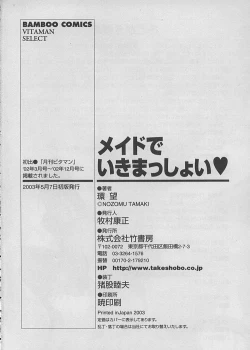 BAMBOO COMICS
VITAMAN
SELECT
初出●「月刊ビタマン」
'02年3月号〜'02年12月号に
掲載されました。
2003年5月7日初版発行
メイドで
いきまっしょい♥
●著者
環 望
©NOZOMU TAMAKI
●発行人
牧村康正
●発行所
株式会社竹書房
〒102-0072 東京都千代田区飯田橋2-7-3
電話 03-3264-1576
振替 00170-2-179210
HP http://www.takeshobo.co.jp
●装丁
猪股睦夫
●印刷所
暁印刷
Printed in Japan 2003
定価はカバーに表示してあります。
乱丁・落丁の場合は当社にてお取り替えいたします。